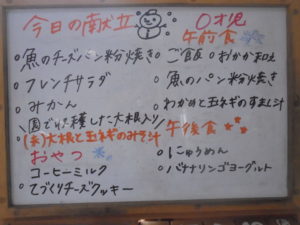 今日の献立
・魚のチーズパン粉焼き
・フレンチサラダ
・みかん
\園で収穫した大根入り/
・(未)大根と玉ネギのみそ汁
おやつ
・コーヒーミルク
・てづくりチーズクッキー
0才児
午前食
・ご飯 ・おかか和え
・魚のパン粉焼き
・わかめと玉ネギのすまし汁
午後食
・にゅうめん
・バナナリンゴヨーグルト